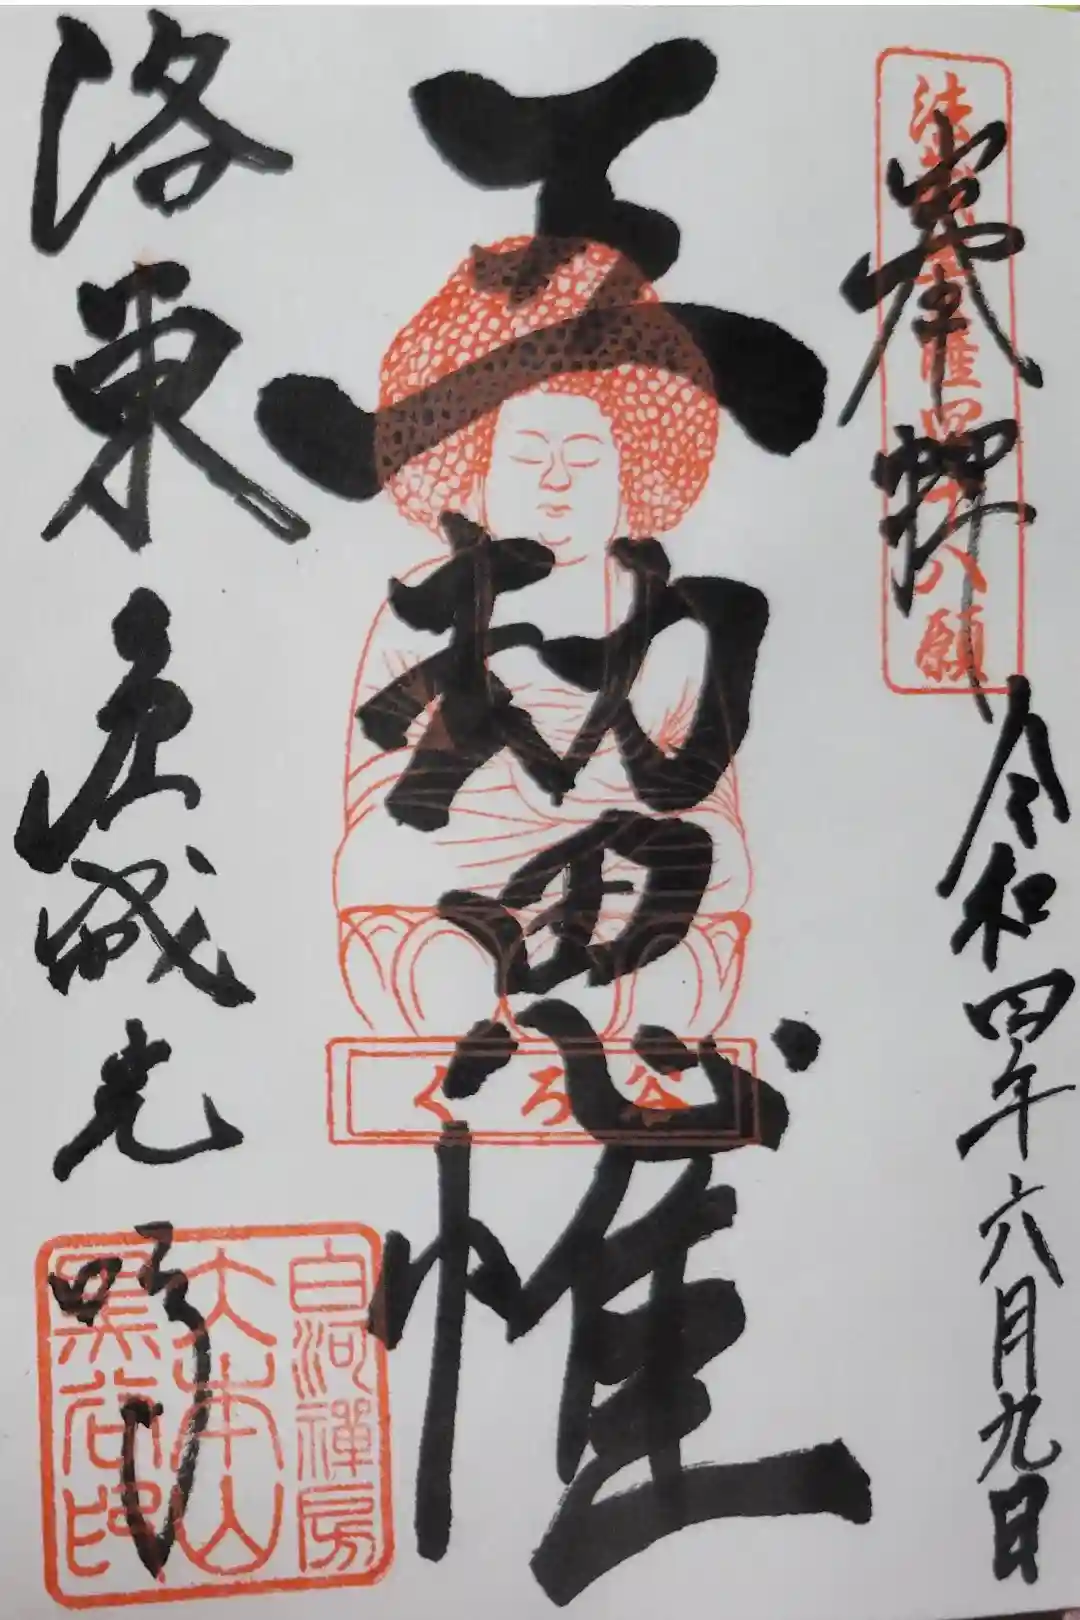 奉拝
令和四年六月九日
法 四十八願
五劫思惟
くろ谷
洛東 金戒光明寺
白河禪房
大本山
黒谷印